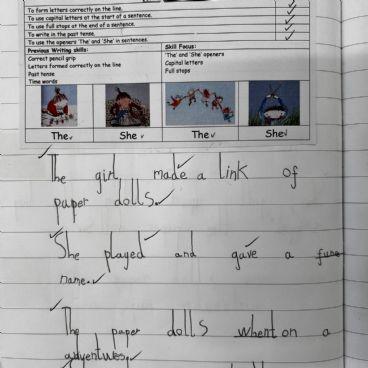 To form letters correctly on the line.
To use capital letters at the start of a sentence.
To use full stops at the end of a sentence.
To write in the past tense.
To use the openers 'The' and 'She' in sentences.
Previous Writing skills:
Correct pencil grip
Letters formed correctly on the line.
Past tense
Time words
Skill Focus:
'The' and 'She' openers
Capital letters
Full stops
The She The She
The girl made a link of
paper dolls.
She played and gave a fune
name.
The paper dolls whent on a
adventures.